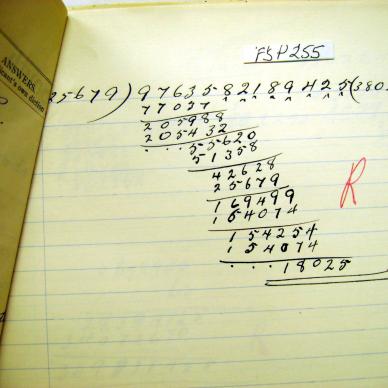 ANSWERS
cant's own diction
P.S.P 255
25679 ) 9763582189425 (380
77037
205988
205432
. . . 55620
51358
42628
25679
169499
154074
154254
154074
. . . 18025
R